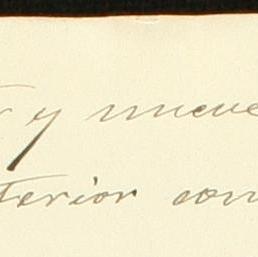 y nueve
terior con